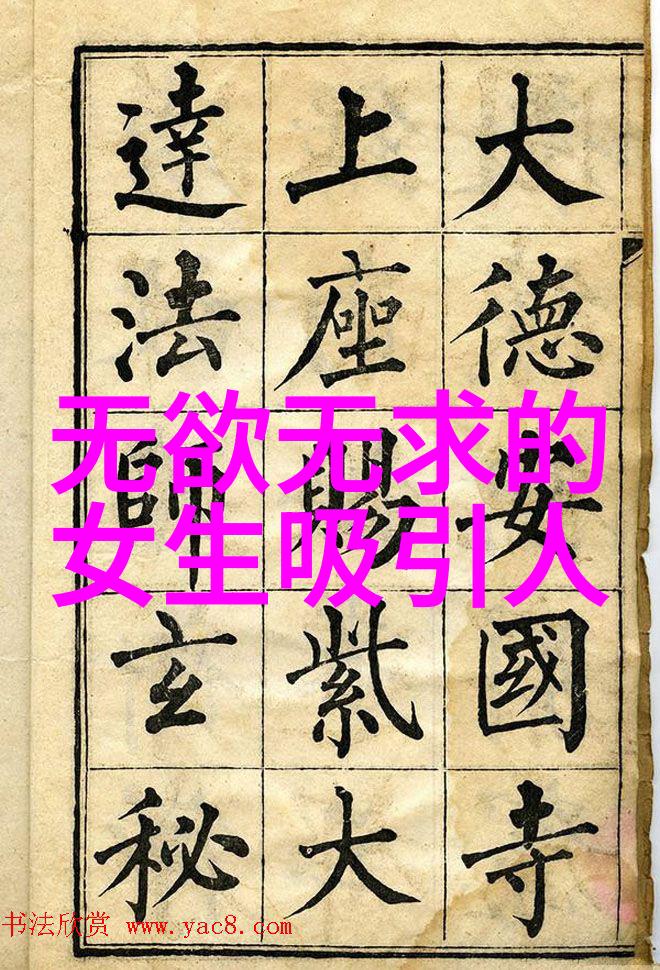 大德安國寺
上座賜紫大
達法師玄秘
无欲无求的
女生吸引人
书法欣赏 www.yac8.com